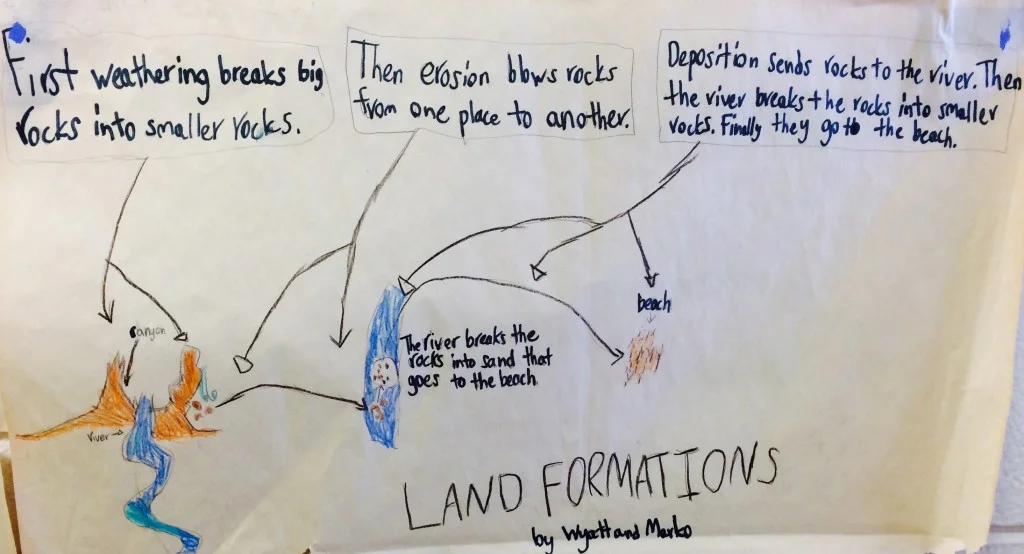 First weathering breaks big
rocks into smaller rocks.
Then erosion blows rocks
from one place to another.
Deposition sends rocks to the river. Then
the river breaks the rocks into smaller
rocks. Finally they go to the beach.
canyon
river
The river breaks the
rocks into sand that
goes to the beach
beach
LAND FORMATIONS
by Wyatt and Marko